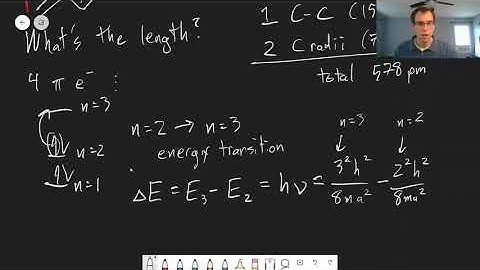 What's the length?
1 C-C (15
2 C radii (7
total 578 pm
4 π e⁻ :
n=3
n=2
n=1
n=2 → n=3
energy transition
n=3 n=2
ΔE = E₃ - E₂ = hν = 3²h²/8ma² - 2²h²/8ma²